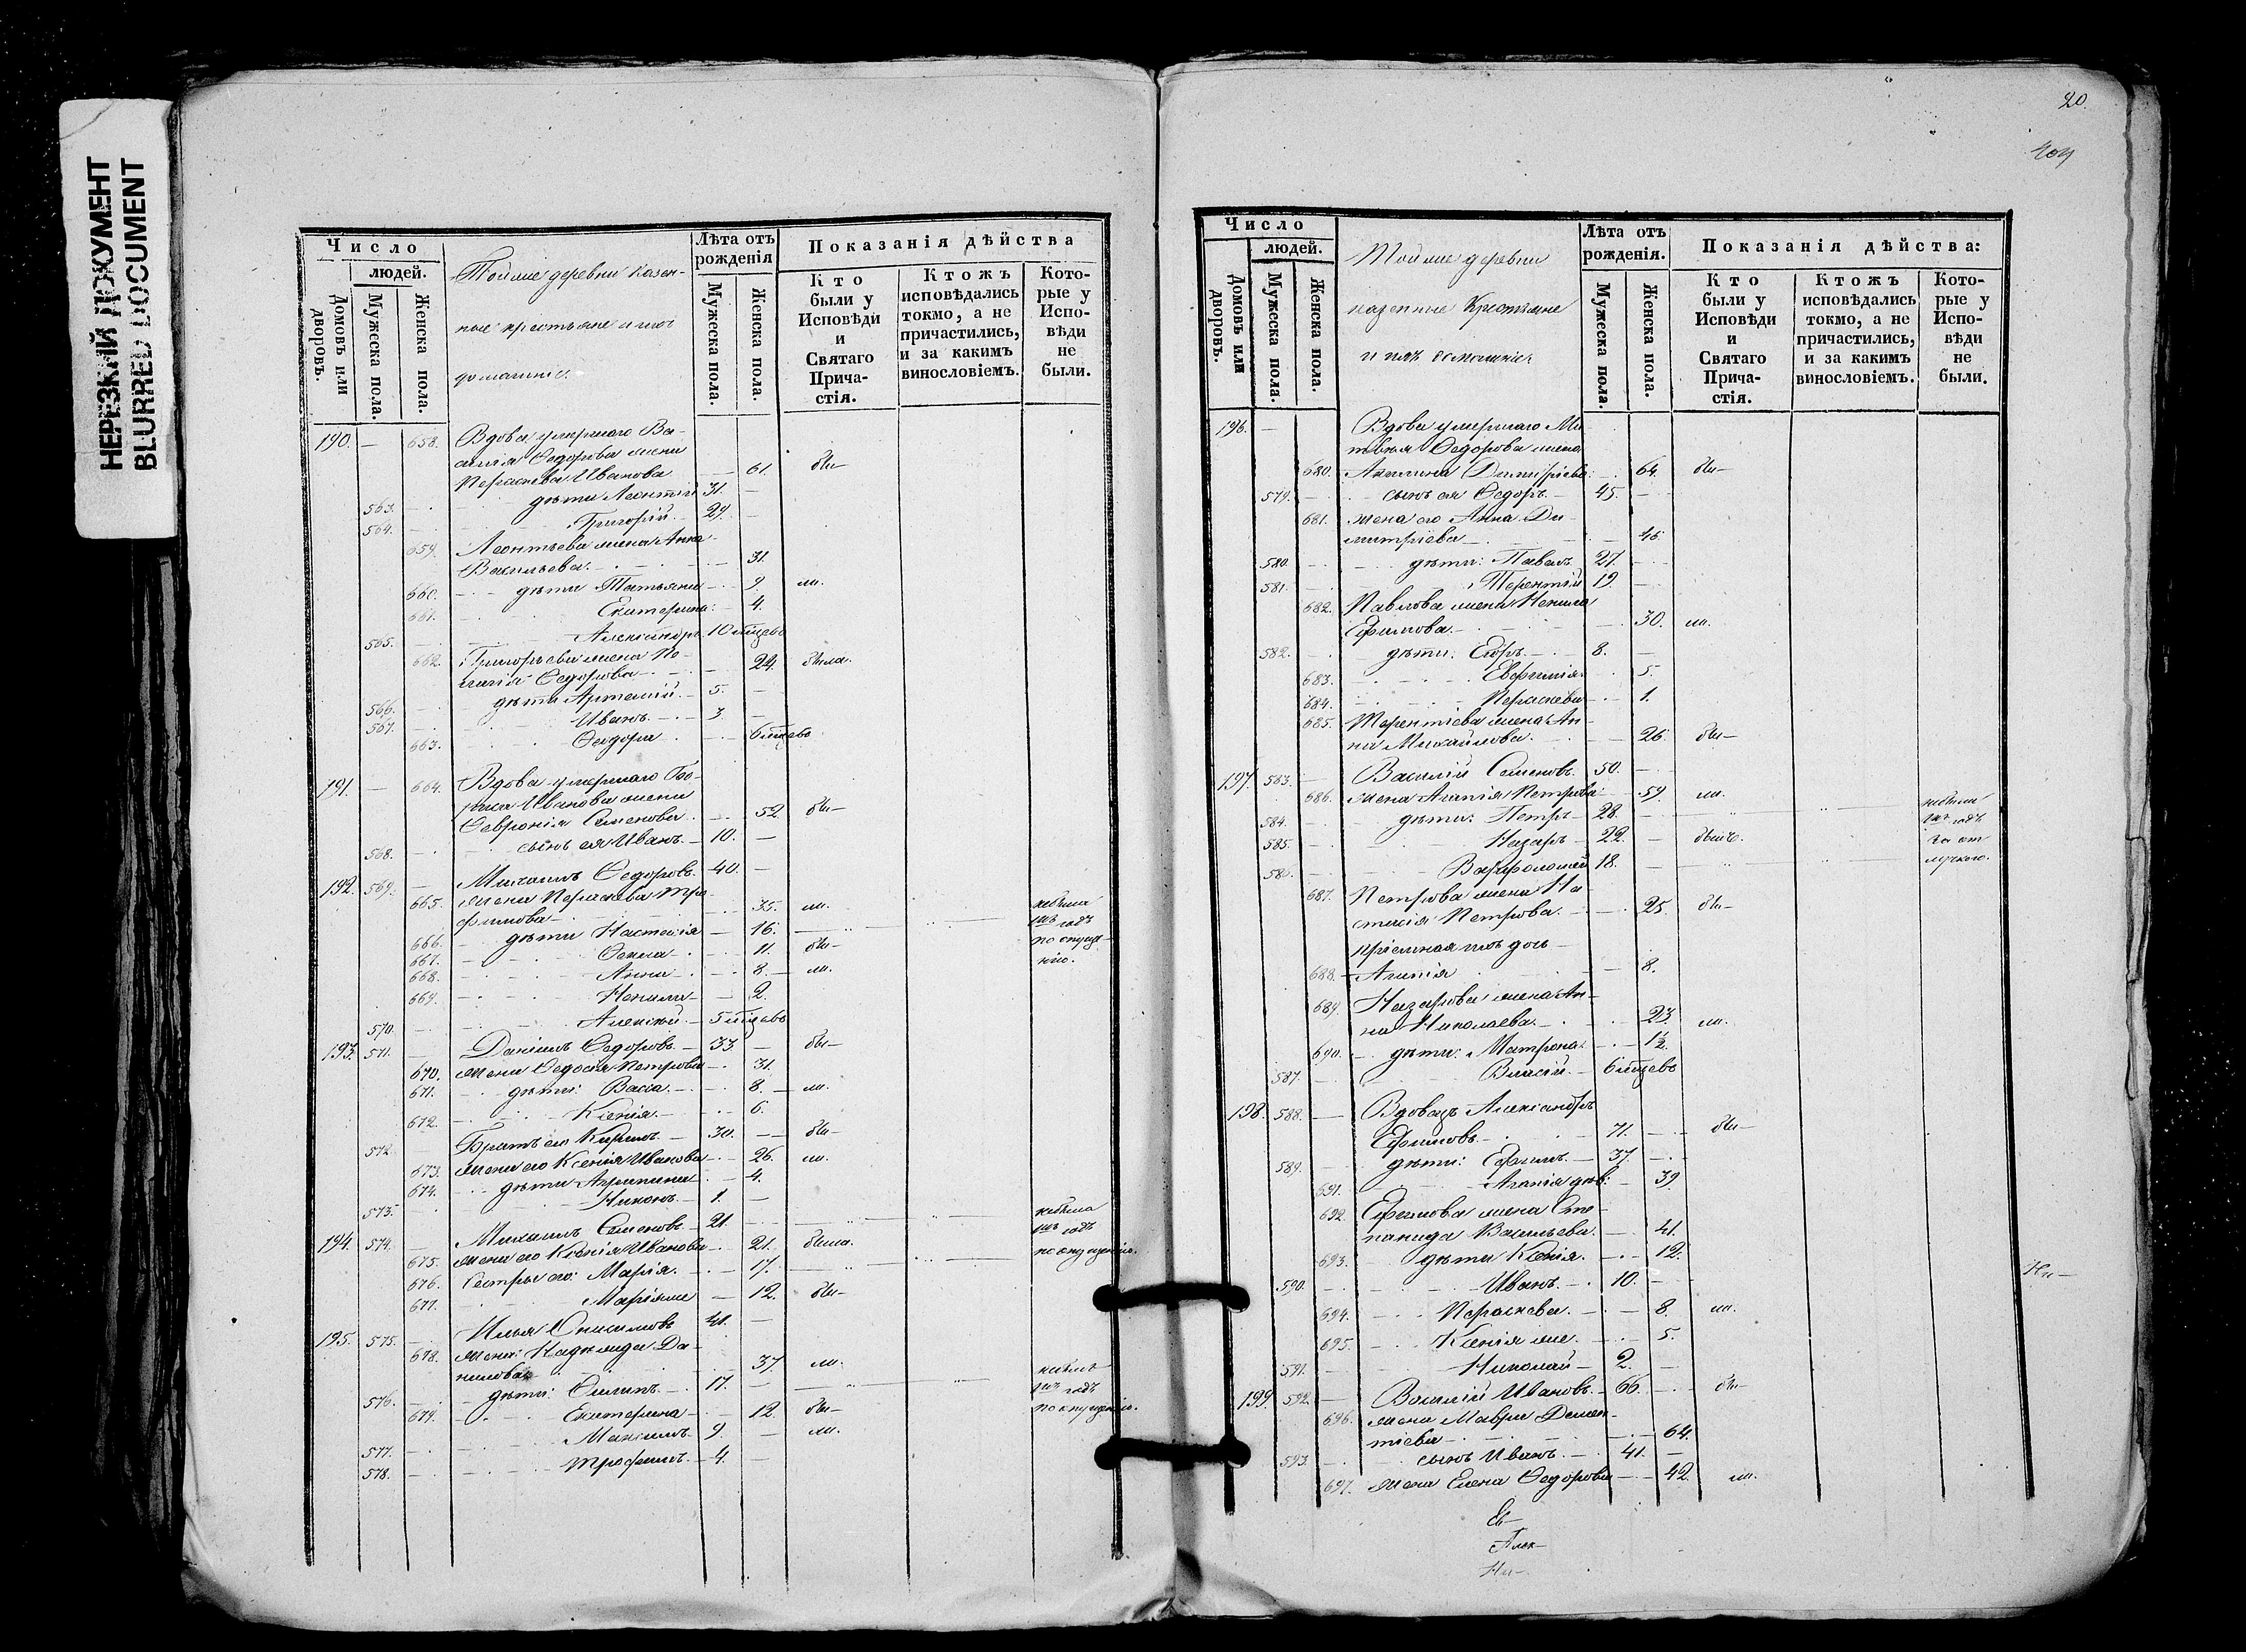 НЕРЕЗКИЙ ДОКУМЕНТ
BLURRED DOCUMENT
Число
людей.
Домовъ или дворовъ.
Мужеска пола.
Женска пола.
Той же деревни казен-
ные крестьяне и ихъ
домашніе.
Лѣта отъ рожденія
Мужеска пола.
Женска пола.
Показанія дѣйства
Кто были у Исповѣди и Святаго Прича-стія.
Ктожъ исповѣдались токмо, а не причастились, и за какимъ винословіемъ.
Кото-рые у Испо-вѣди не были.
190. — 658. Вдова умершаго Ва-
силія Ѳедорова жена
Параскева Иванова — 61. бы-
563. дѣти Леонтій 31. —
564. Григорій 29. —
659. Леонтьева жена Анна
Васильева 31.
660. дѣти Татьяна 9. ли.
661. Екатерина 4.
565. Александръ 10 мѣсцевъ
662. Григорьева жена Пе-
лагія Ѳедорова 24. была.
566. дѣти Артемій 5. —
567. Иванъ 3 —
663. Ѳеодора 6 мѣсцевъ
191. — 664. Вдова умершаго Бо-
риса Иванова жена
Ѳевронія Семенова 52. бы-
568. сынъ ея Иванъ 10. —
192. 569. — Михаилъ Ѳедоровъ 40. —
665. жена Параскева Тро-
фимова 35. ли. небыла
666. дѣти Настасія — 16. 1й годъ
667. Ѳекла 11. бы- по опуще-
668. Анна 8. ли. нію.
669. Ненила — 2.
570. Алексѣй 5 мѣсцевъ
193. 571. Даніилъ Ѳедоровъ 33 — бы-
670. жена Ѳедосія Петрова 31.
671. дѣти: Васса 8. — ли.
672. Ксенія 6.
572. Братъ его Кирилъ 30. — бы-
673. жена его Ксенія Иванова 26. ли.
674. дѣти Агрипина 4.
573. Никонъ 1. —
194. 574. Михаилъ Семеновъ 21. небыла
675. жена его Ксенія Иванова 21. была. 1й годъ
676. Сестры его: Марія 17. по опущенію.
677. Марія же — 12. бы-
195. 575. Илья Онисимовъ 41. —
678. жена: Надежда Да-
нилова 37. ли. небылъ
576. дѣти: Филипъ 17. — 1й годъ
679. Екатерина 12. бы- по опущенію.
577. Максимъ 9. — ли.
578. Трофимъ 4. —
20.
Число
людей.
Домовъ или дворовъ.
Мужеска пола.
Женска пола.
Той же деревни
казенные крестьяне
и ихъ домашніе
Лѣта отъ рожденія.
Мужеска пола.
Женска пола.
Показанія дѣйства:
Кто были у Исповѣди и Святаго Прича-стія.
Ктожъ исповѣдались токмо, а не причастились, и за какимъ винословіемъ.
Кото-рые у Испо-вѣди не были.
196. — Вдова умершаго Ма-
твѣя Ѳедорова жена
680. Акилина Димитріева 64. бы-
579. сынъ ея Ѳедоръ 45. —
681. жена его Анна Ди-
митріева 45
580. дѣти: Павелъ 27.
581. Терентій 19. —
682. Павлова жена Ненила
Ефимова 30. ли.
582. дѣти: Егоръ 8. —
683. Евфимія 5.
684. Параскева 1.
685. Терентіева жена Ан-
на Михайлова — 26. бы-
197. 583. — Василій Семеновъ 50. —
686. жена Агапія Петрова 59. ли.
584. дѣти: Петръ 28. — небыли
585. Назаръ 22. — былъ. 1й годъ
586. Варфоломей 18. — за от
лучкою.
687. Петрова жена На-
стасія Петрова 25. бы-
пріемная ихъ дочь
688. Агапія — 8.
689. Назарова жена Ан-
на Николаева 23. ли.
690. дѣти: Матрона 1½.
587. Власій 6 мѣсцевъ
198. 588. — Вдовецъ Александръ
Ефимовъ 71. бы-
589. дѣти: Ефимъ 37.
691. Агапія дѣв: 39
692. Ефимова жена Сте-
панида Васильева 41.
693. дѣти Ксенія 12.
590. Иванъ 10.
694. Параскева — 8 ли.
695. Ксенія же 5.
591. Николай 2. —
199. 592. — Василій Ивановъ 66. бы-
696. жена Мавра Демен-
тіева 64.
593. сынъ Иванъ 41. —
697. жена Елена Ѳедорова 42. ли.
Ни-
Ев-
Алек-
Ни-